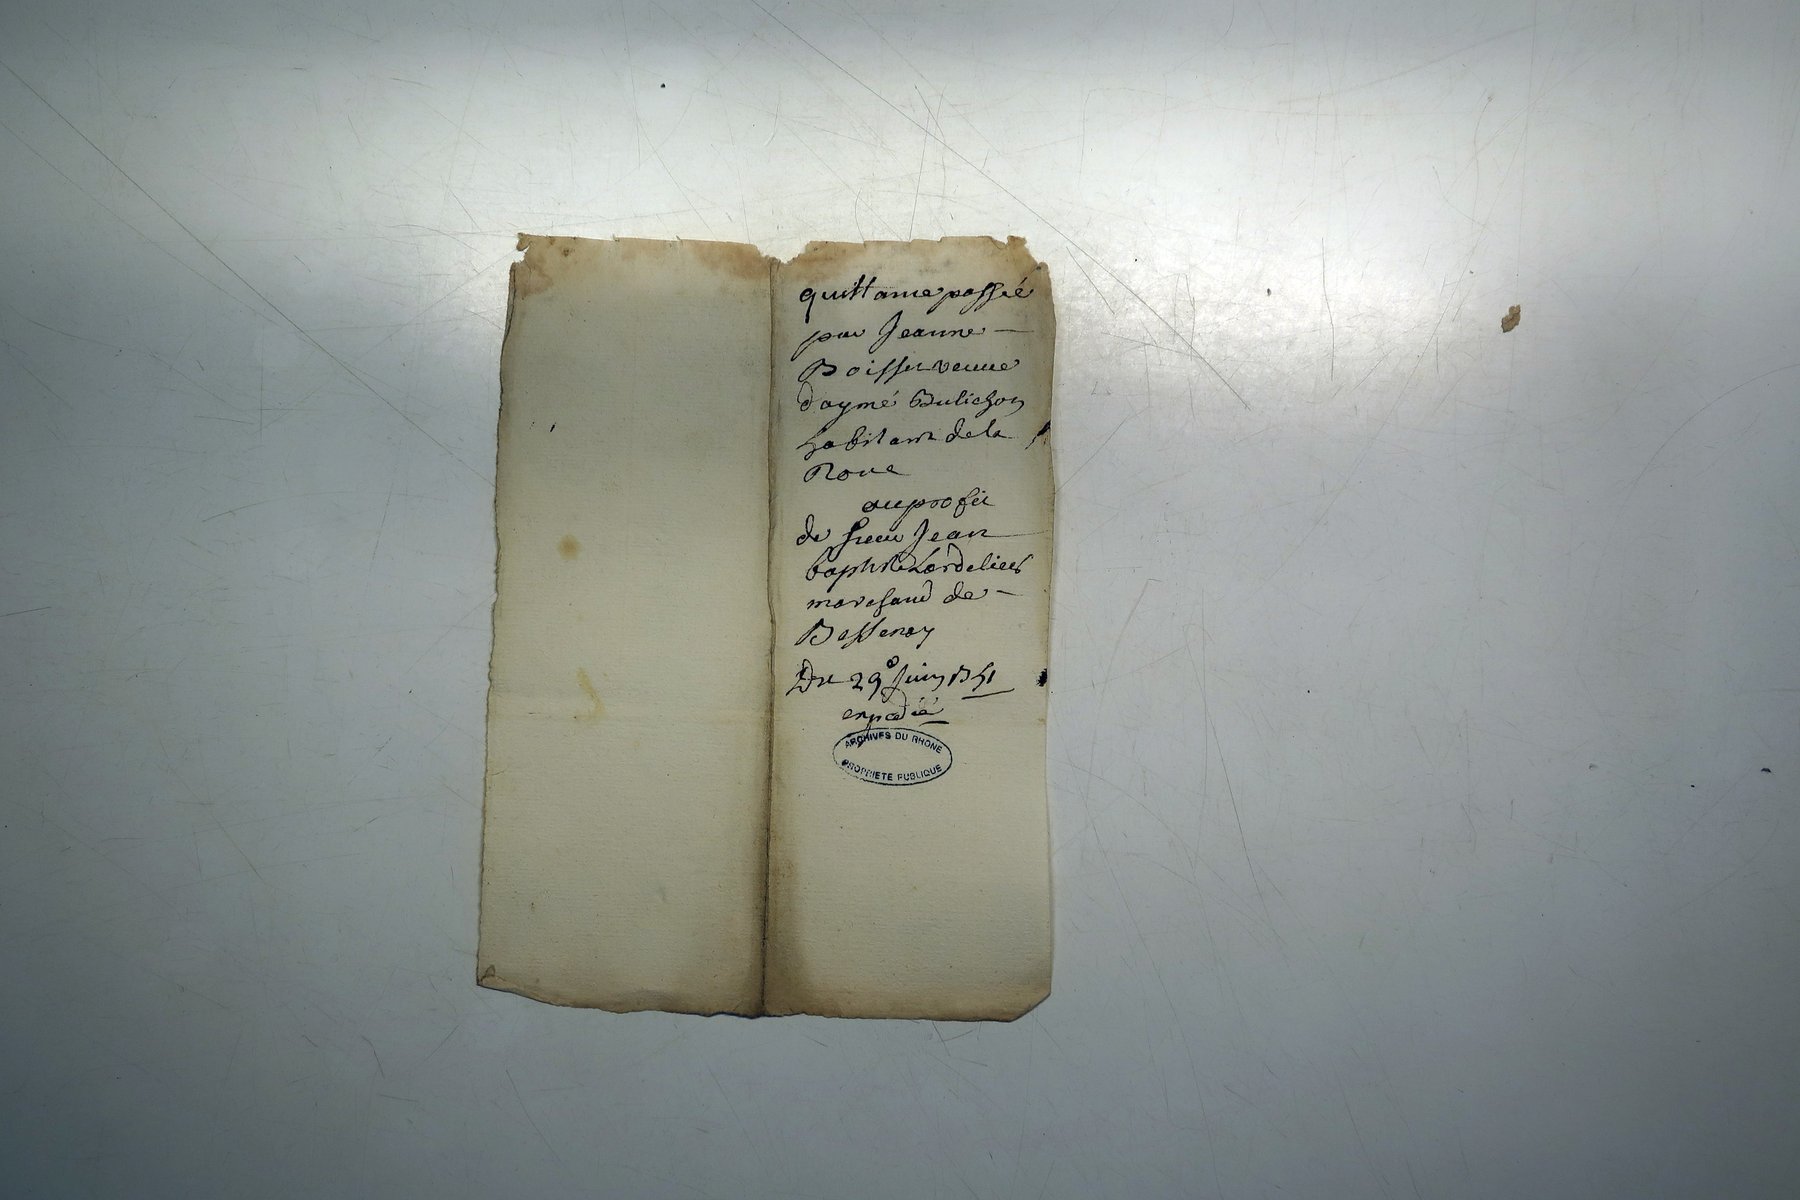 quittance passée
par Jeanne
Boisset veuve
daymé Bulichon
habitant de la
Roue
au profit
de sieur Jean
baptiste Cordeliers
marchand de
Bessenay
Du 29e Juin 1751
expedié
ARCHIVES DU RHONE
PROPRIETE PUBLIQUE